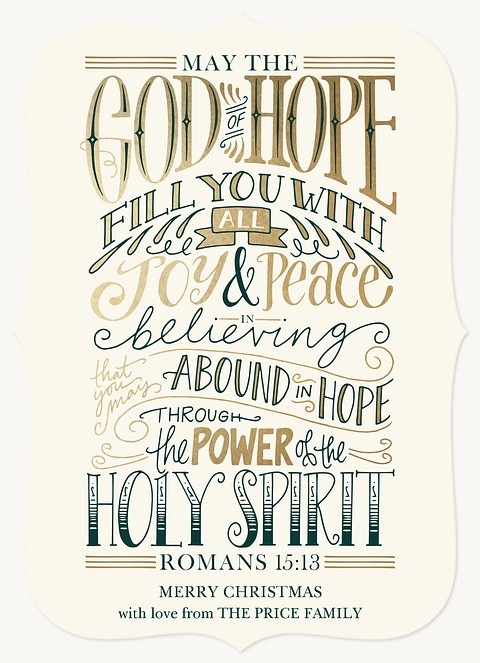 MAY THE
GOD OF HOPE
FILL YOU WITH
ALL
Joy & Peace
IN
believing
that you may
ABOUND IN HOPE
THROUGH
the POWER of the
HOLY SPIRIT
ROMANS 15:13
MERRY CHRISTMAS
with love from THE PRICE FAMILY